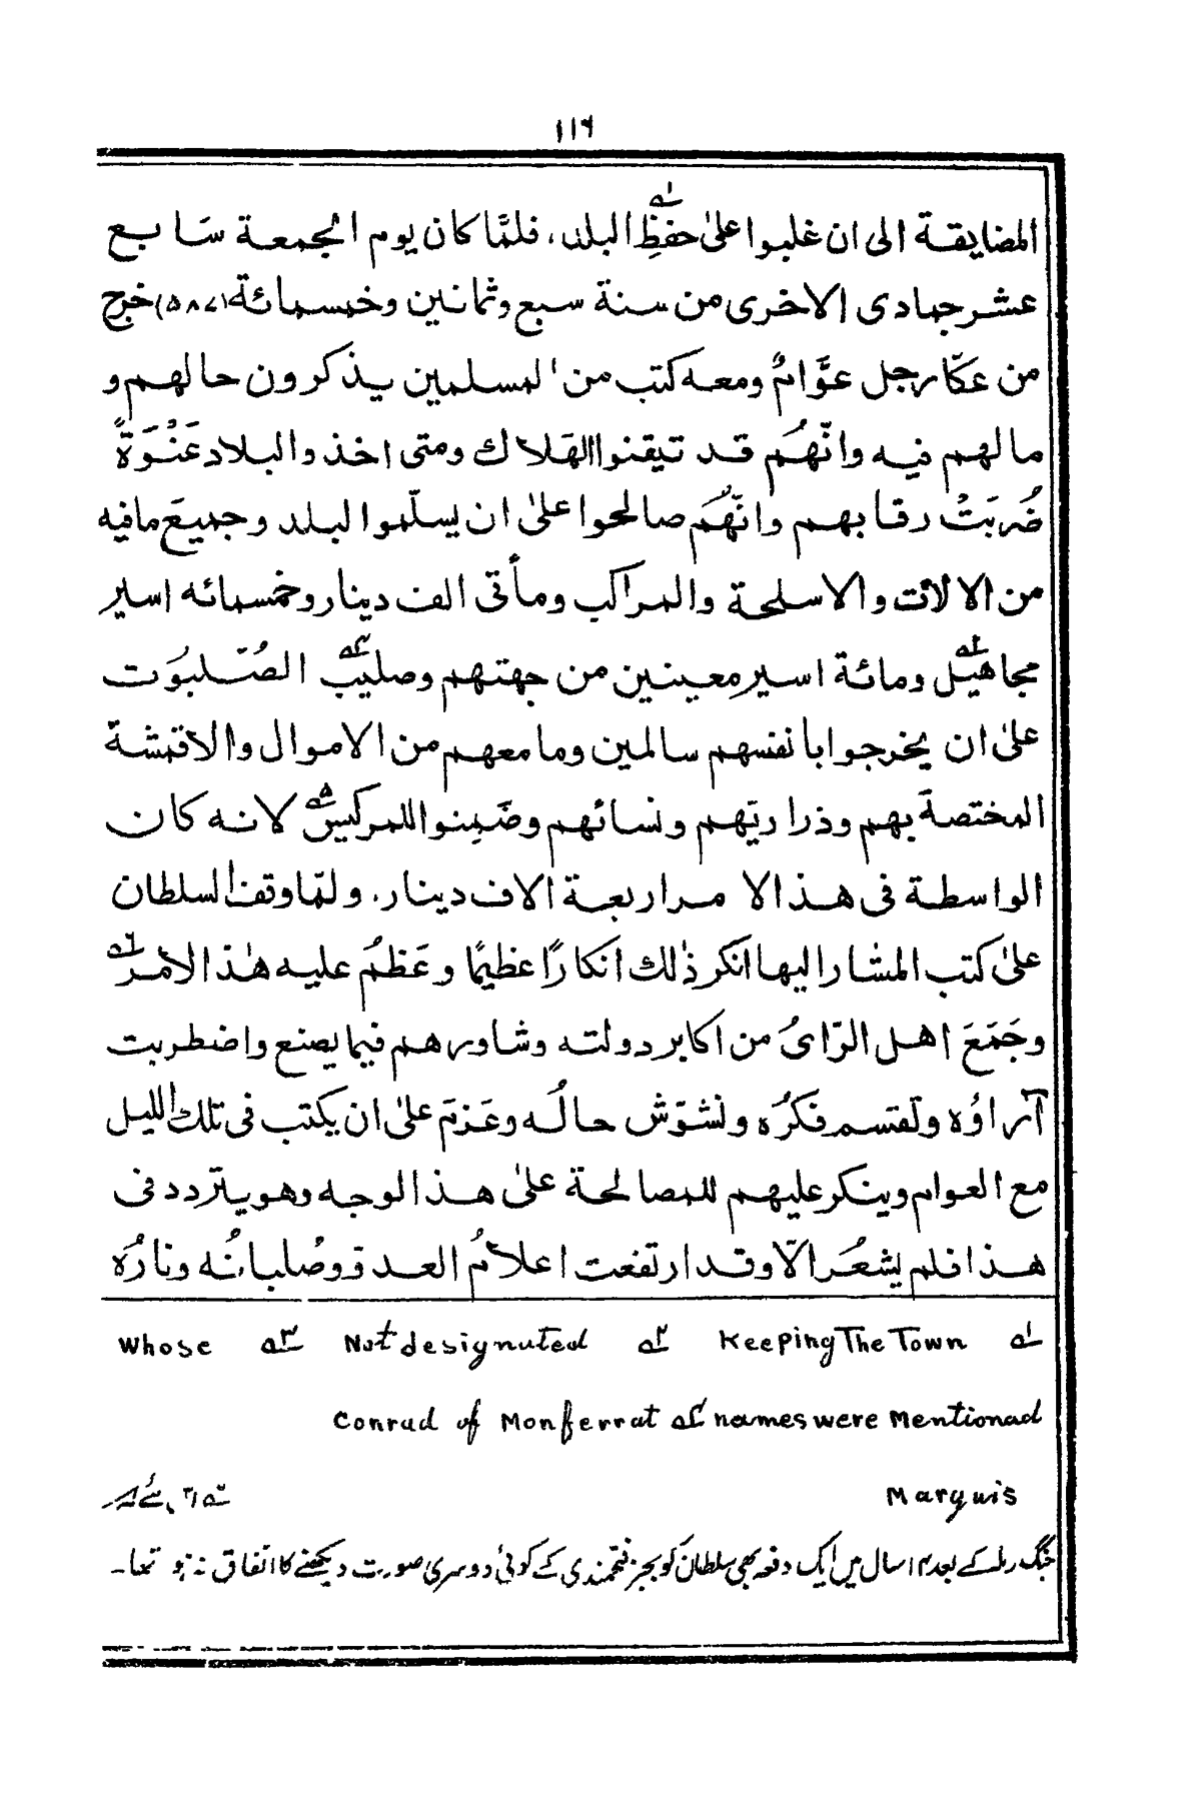 ۱۱۶
المضايقة الى ان غلبوا على حفظِ البلد، فلمَّا كان يوم الجمعة سَابع
عشر جمادى الاخرى من سنة سبع وثمانين وخمسمائة (۵۸۷) خرج
من عكّا رجل عوَّامٌ ومعه كتب من المسلمين يذكرون حالهم و
مالهم فيه وانّهُم قد تيقنوا الهَلاك ومتى اخذ والبلاد عَنْوَةً
ضُرِبَتْ رقابهم وانّهُم صالحوا علىٰ ان يسلّموا البلد وجميعَ مافيه
من الالات والاسلحة والمراكب ومأتى الف دينار وخمسمائه اسير
مجاهيل ومائة اسير معينين من جهتهم وصليب الصُلبُوت
علىٰ ان يخرجوا بانفسهم سالمين وما معهم من الاموال والاقمشة
المختصةَ بهم وذراريّهم ونسائهم وضَمِنوا للمركيس لانه كان
الواسطة فى هذا الامر اربعة الاف دينار، ولمّا وقف السلطان
علىٰ كتب المشار اليها انكر ذٰلك انكارًا عظيمًا وعَظُمَ عليه هٰذا الامر
وجَمَعَ اهل الرّاىُ من اكابر دولته وشاورهم فيما يصنع واضطربت
آراؤه وتقسم فكرُه وتشوّش حالُه وعَزمَ علىٰ ان يكتب فى تلك الليل
مع العوام وينكر عليهم للمصالحة علىٰ هذا الوجه وهو يتردد فى
هذا فلم يشعُر الّا وقد ارتفعت اعلامُ العدو وصُلبانُه ونارُه
لہ Keeping The Town ۲ہ Not designuted ۳ہ Whose
names were Mentionad ۴ہ Conrad of Monferrat
Marquis
جنگ رملہ کے بعد ۱۴ سال میں ایک دفعہ بھی سلطان کو بجز فتحمندی کے کوئی دوسری صورت دیکھنے کا اتفاق نہ ہو تھا۔